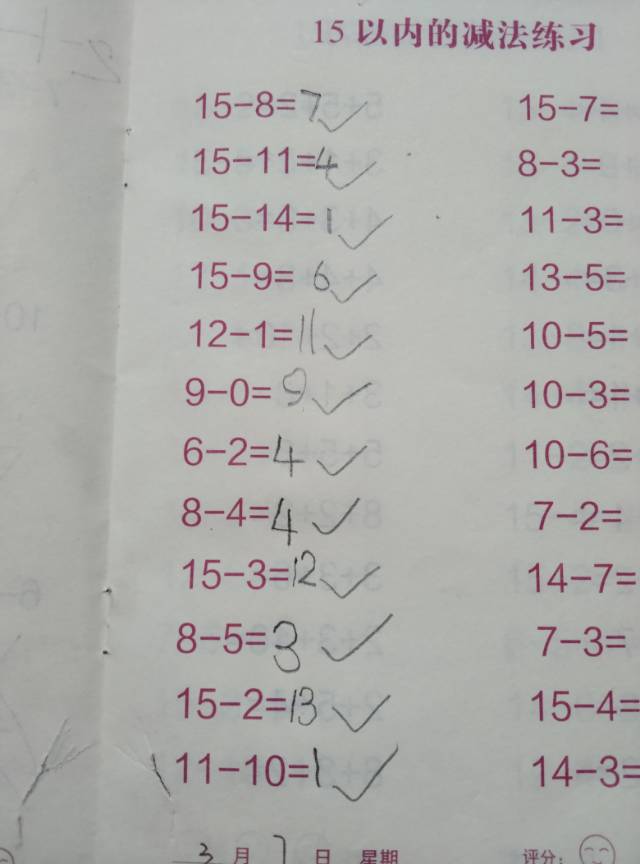 15以内的减法练习
15−8=7 15−7=
15−11=4 8−3=
15−14=1 11−3=
15−9=6 13−5=
12−1=11 10−5=
9−0=9 10−3=
6−2=4 10−6=
8−4=4 7−2=
15−3=12 14−7=
8−5=3 7−3=
15−2=13 15−4=
11−10=1 14−3=
3月7日 星期 评分: